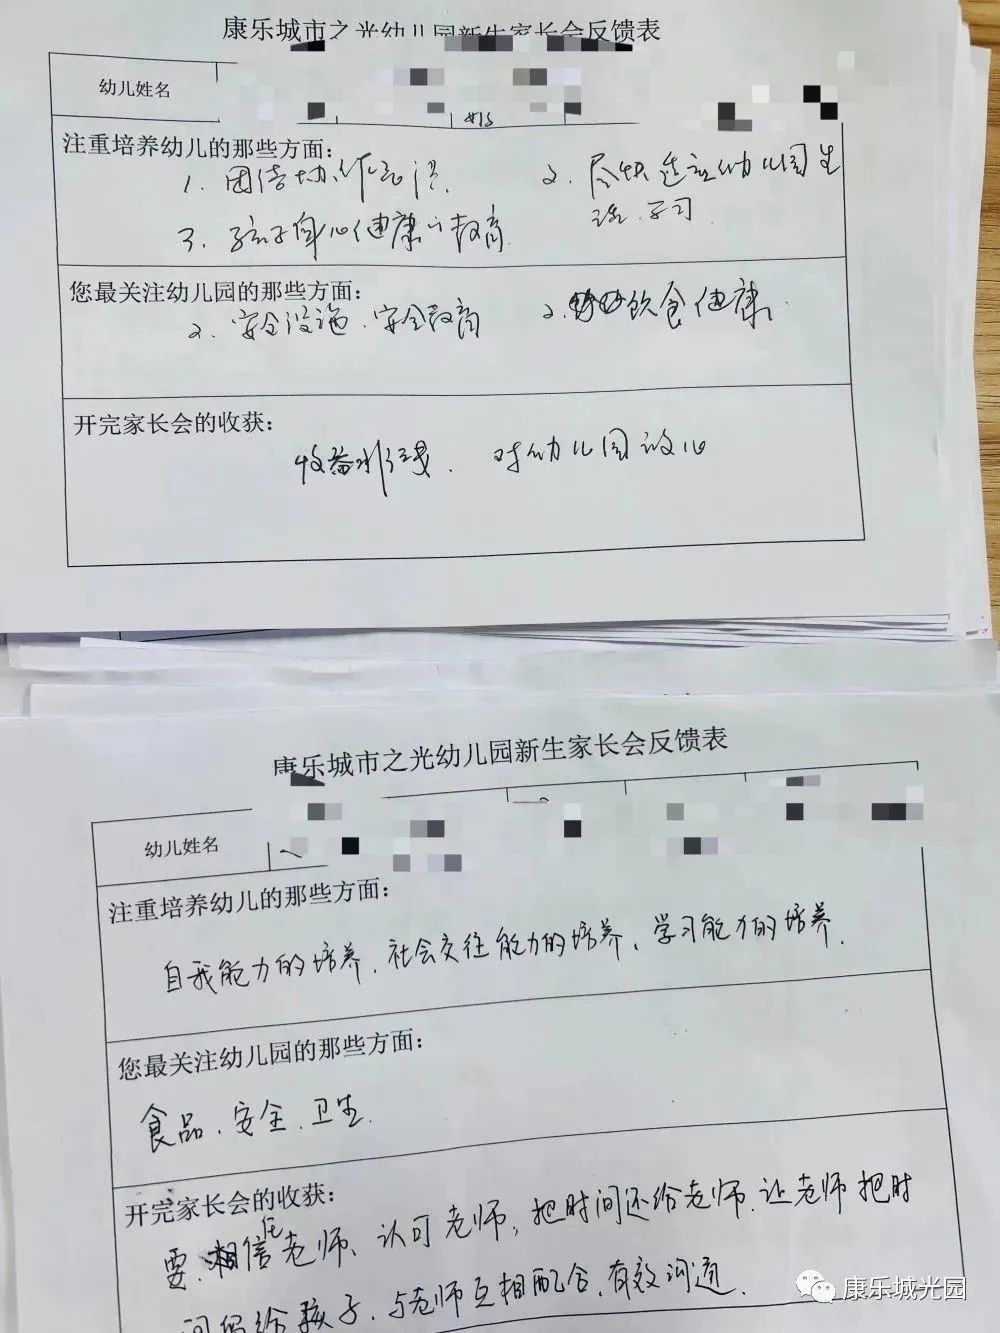 康乐城市之光幼儿园新生家长会反馈表
幼儿姓名
注重培养幼儿的那些方面：
1. 团结协作意识. 2. 尽快适应幼儿园生
活、学习.
3. 孩子身心健康的教育.
您最关注幼儿园的那些方面：
2. 安全设施、安全教育 2. 饮食健康.
开完家长会的收获：
收益水浅. 对幼儿园放心
康乐城市之光幼儿园新生家长会反馈表
幼儿姓名
注重培养幼儿的那些方面：
自我能力的培养、社会交往能力的培养、学习能力的培养.
您最关注幼儿园的那些方面：
食品、安全、卫生.
开完家长会的收获：
要信任老师、认可老师, 把时间还给老师. 让老师把时
间留给孩子. 与老师互相配合, 有效沟通.
康乐城光园